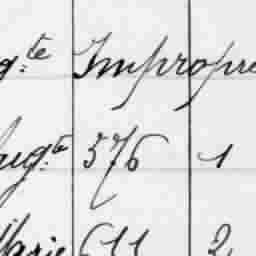 g.te Impropre
Aug.te 576 1
Marie 611 2